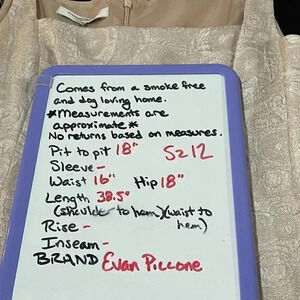 Comes from a smoke free
and dog loving home.
*Measurements are
approximate*
No returns based on measures.
Pit to pit 18" Sz 12
Sleeve -
Waist 16" Hip 18"
Length 38.5"
(shoulder to hem)(waist to
hem)
Rise -
Inseam -
BRAND Evan Piccone